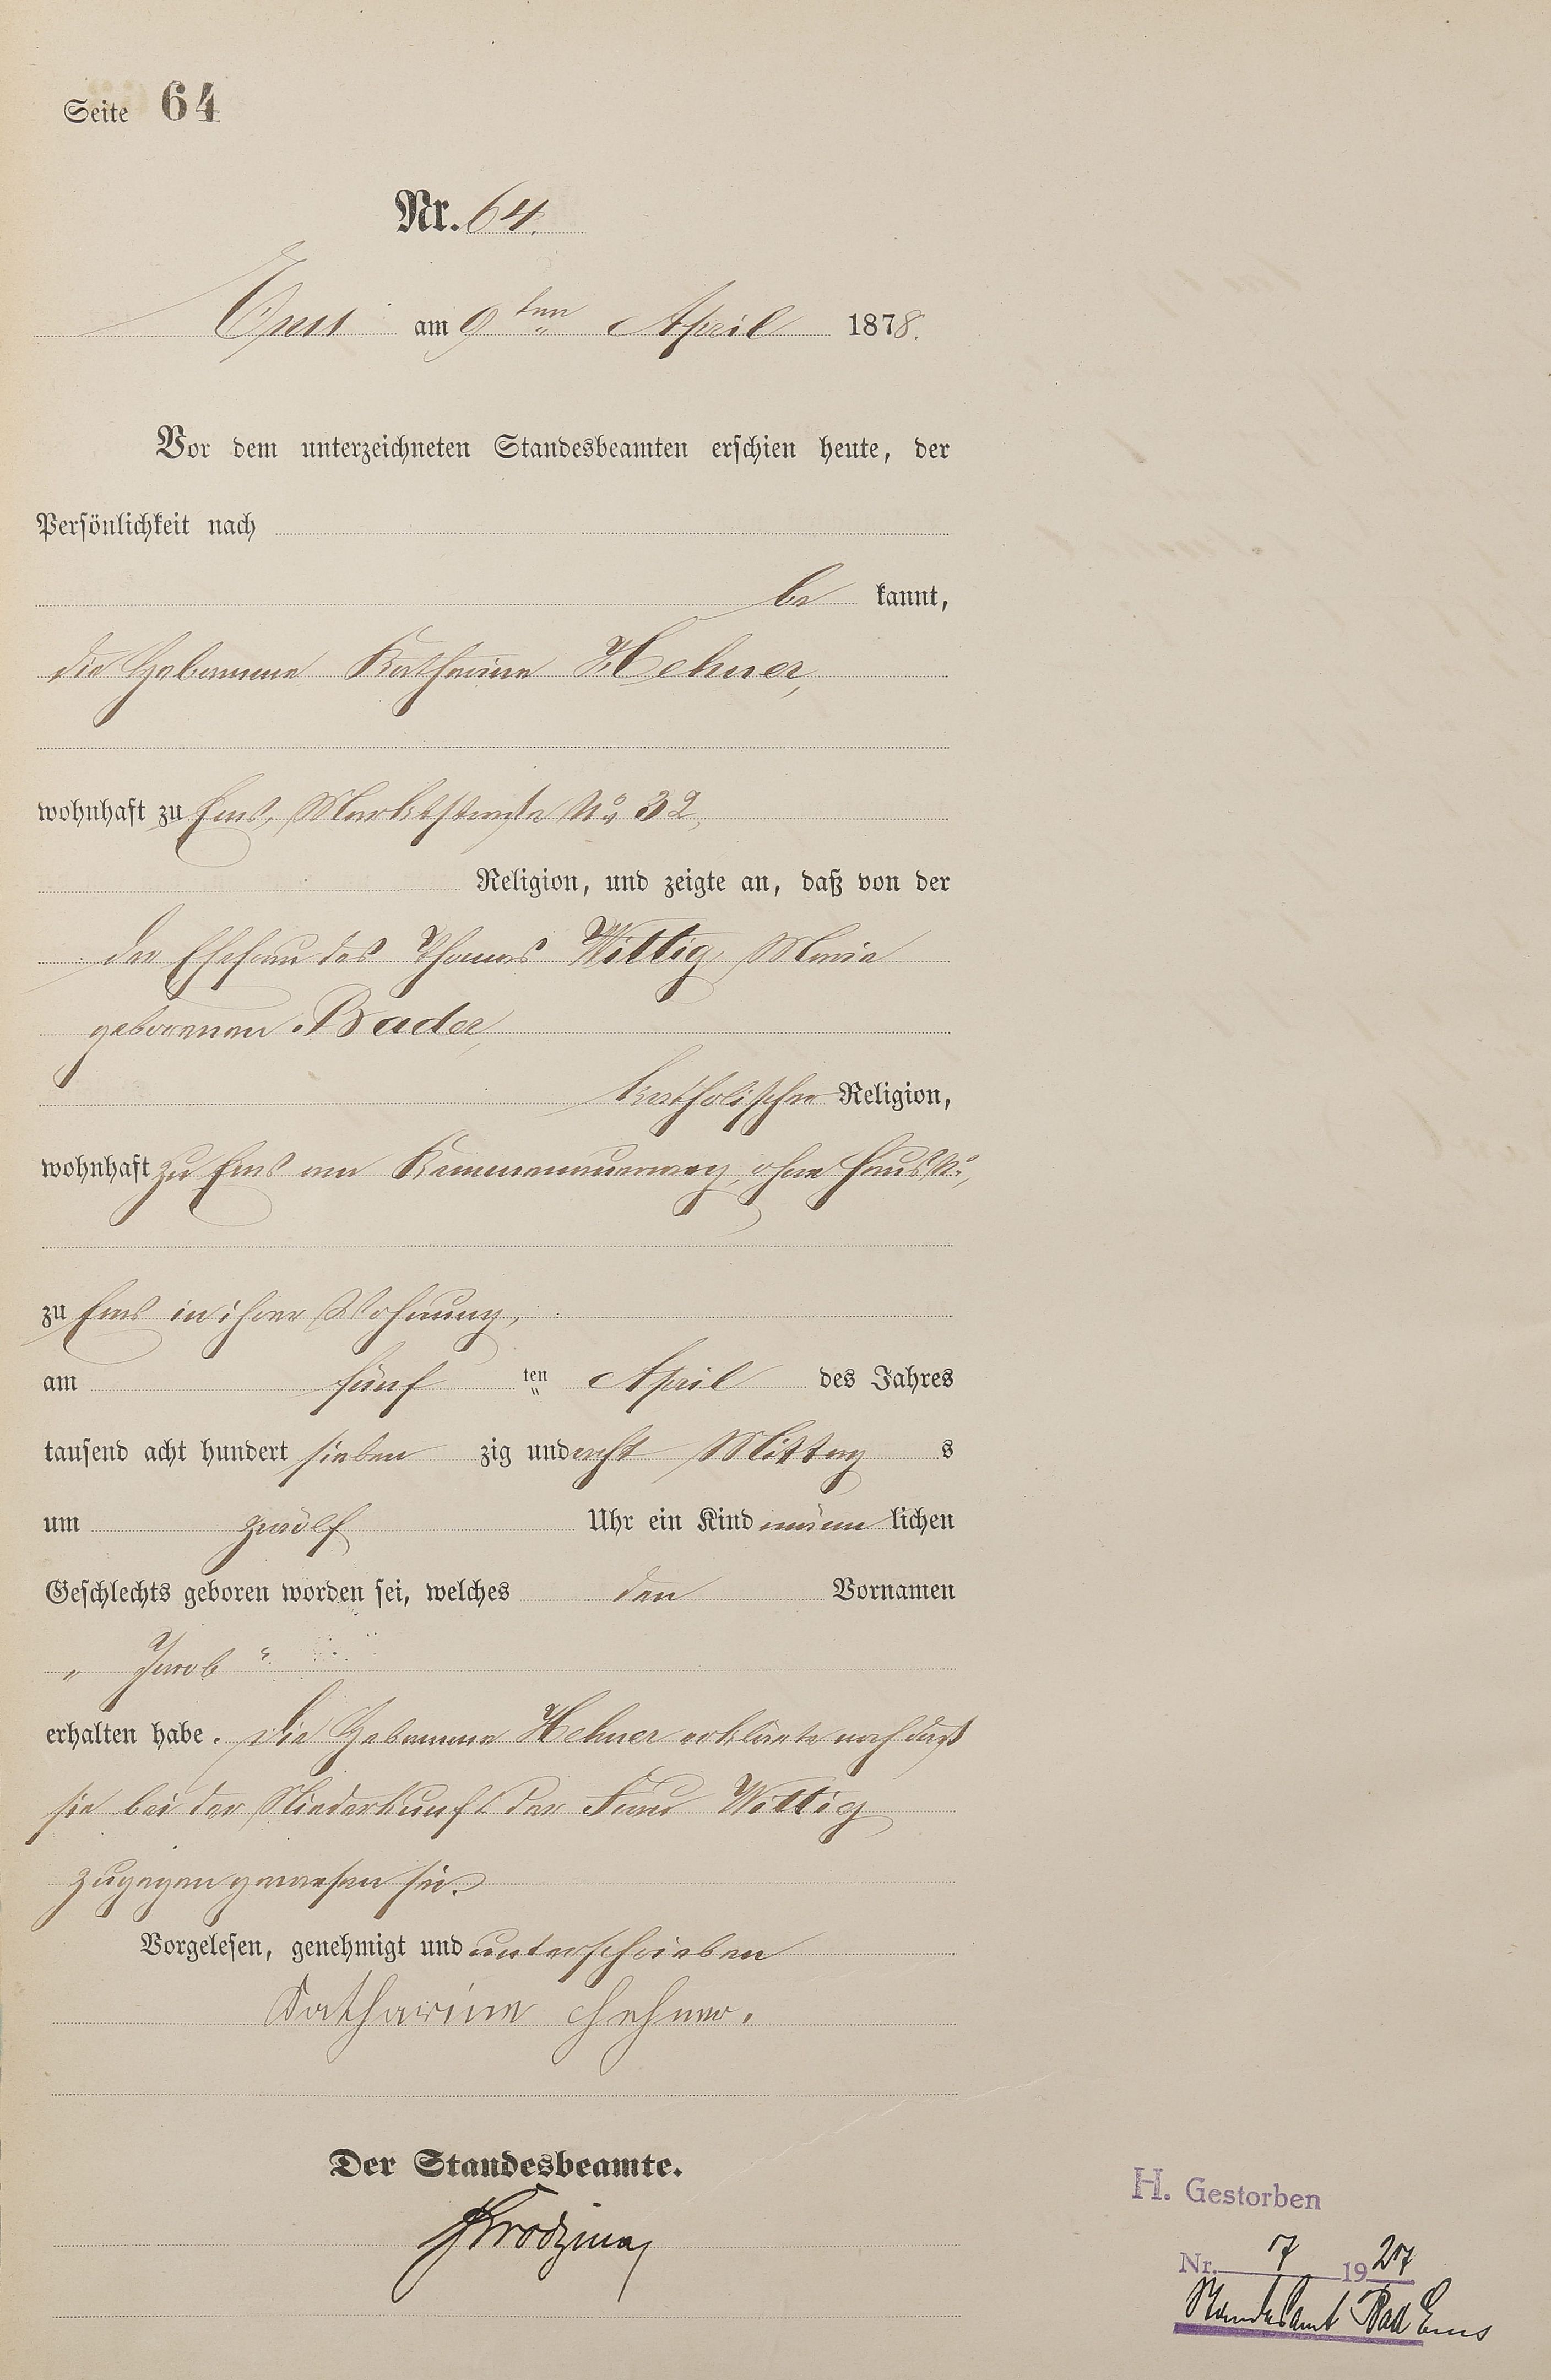 Seite 64
Nr. 64.
Ems am 9ten April 1878.
Vor dem unterzeichneten Standesbeamten erschien heute, der
Persönlichkeit nach
be kannt,
die Hebamme Katharine Hehner,
wohnhaft zu Ems, Marktstraße No 32,
Religion, und zeigte an, daß von der
der Ehefrau des Thomas Wittig, Marie
geborenen Bader,
katholischer Religion,
wohnhaft zu Ems am Kemmenauerweg, ohne Haus No,
zu Ems in ihrer Wohnung,
am fünf ten April des Jahres
tausend acht hundert sieben zig und acht Mittag s
um zwölf Uhr ein Kind männ lichen
Geschlechts geboren worden sei, welches den Vornamen
„ Jacob “
erhalten habe. Die Hebamme Hehner erklärte noch daß
sie bei der Niederkunft der Frau Wittig
zugegen gewesen sei.
Vorgelesen, genehmigt und unterschrieben
Katharine Hehner.
Der Standesbeamte.
H. Gestorben
Nr. 7 1927
Standesamt Bad Ems